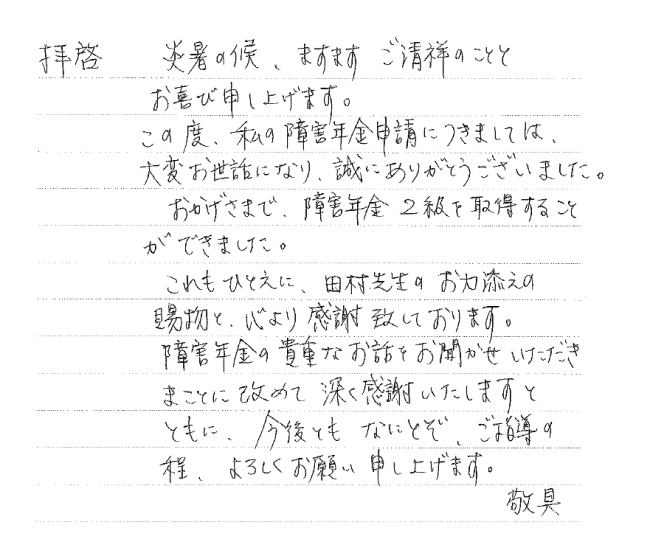 拝啓　炎暑の候、ますます ご清祥のことと
お喜び申し上げます。
この度、私の障害年金申請につきましては、
大変お世話になり、誠にありがとうございました。
おかげさまで、障害年金 2級を取得すること
ができました。
これもひとえに、田村先生の お力添えの
賜物と、心より感謝致しております。
障害年金の貴重なお話をお聞かせいただき
まことに改めて深く感謝いたしますと
ともに、今後とも なにとぞ、ご指導の
程、よろしくお願い申し上げます。
敬具